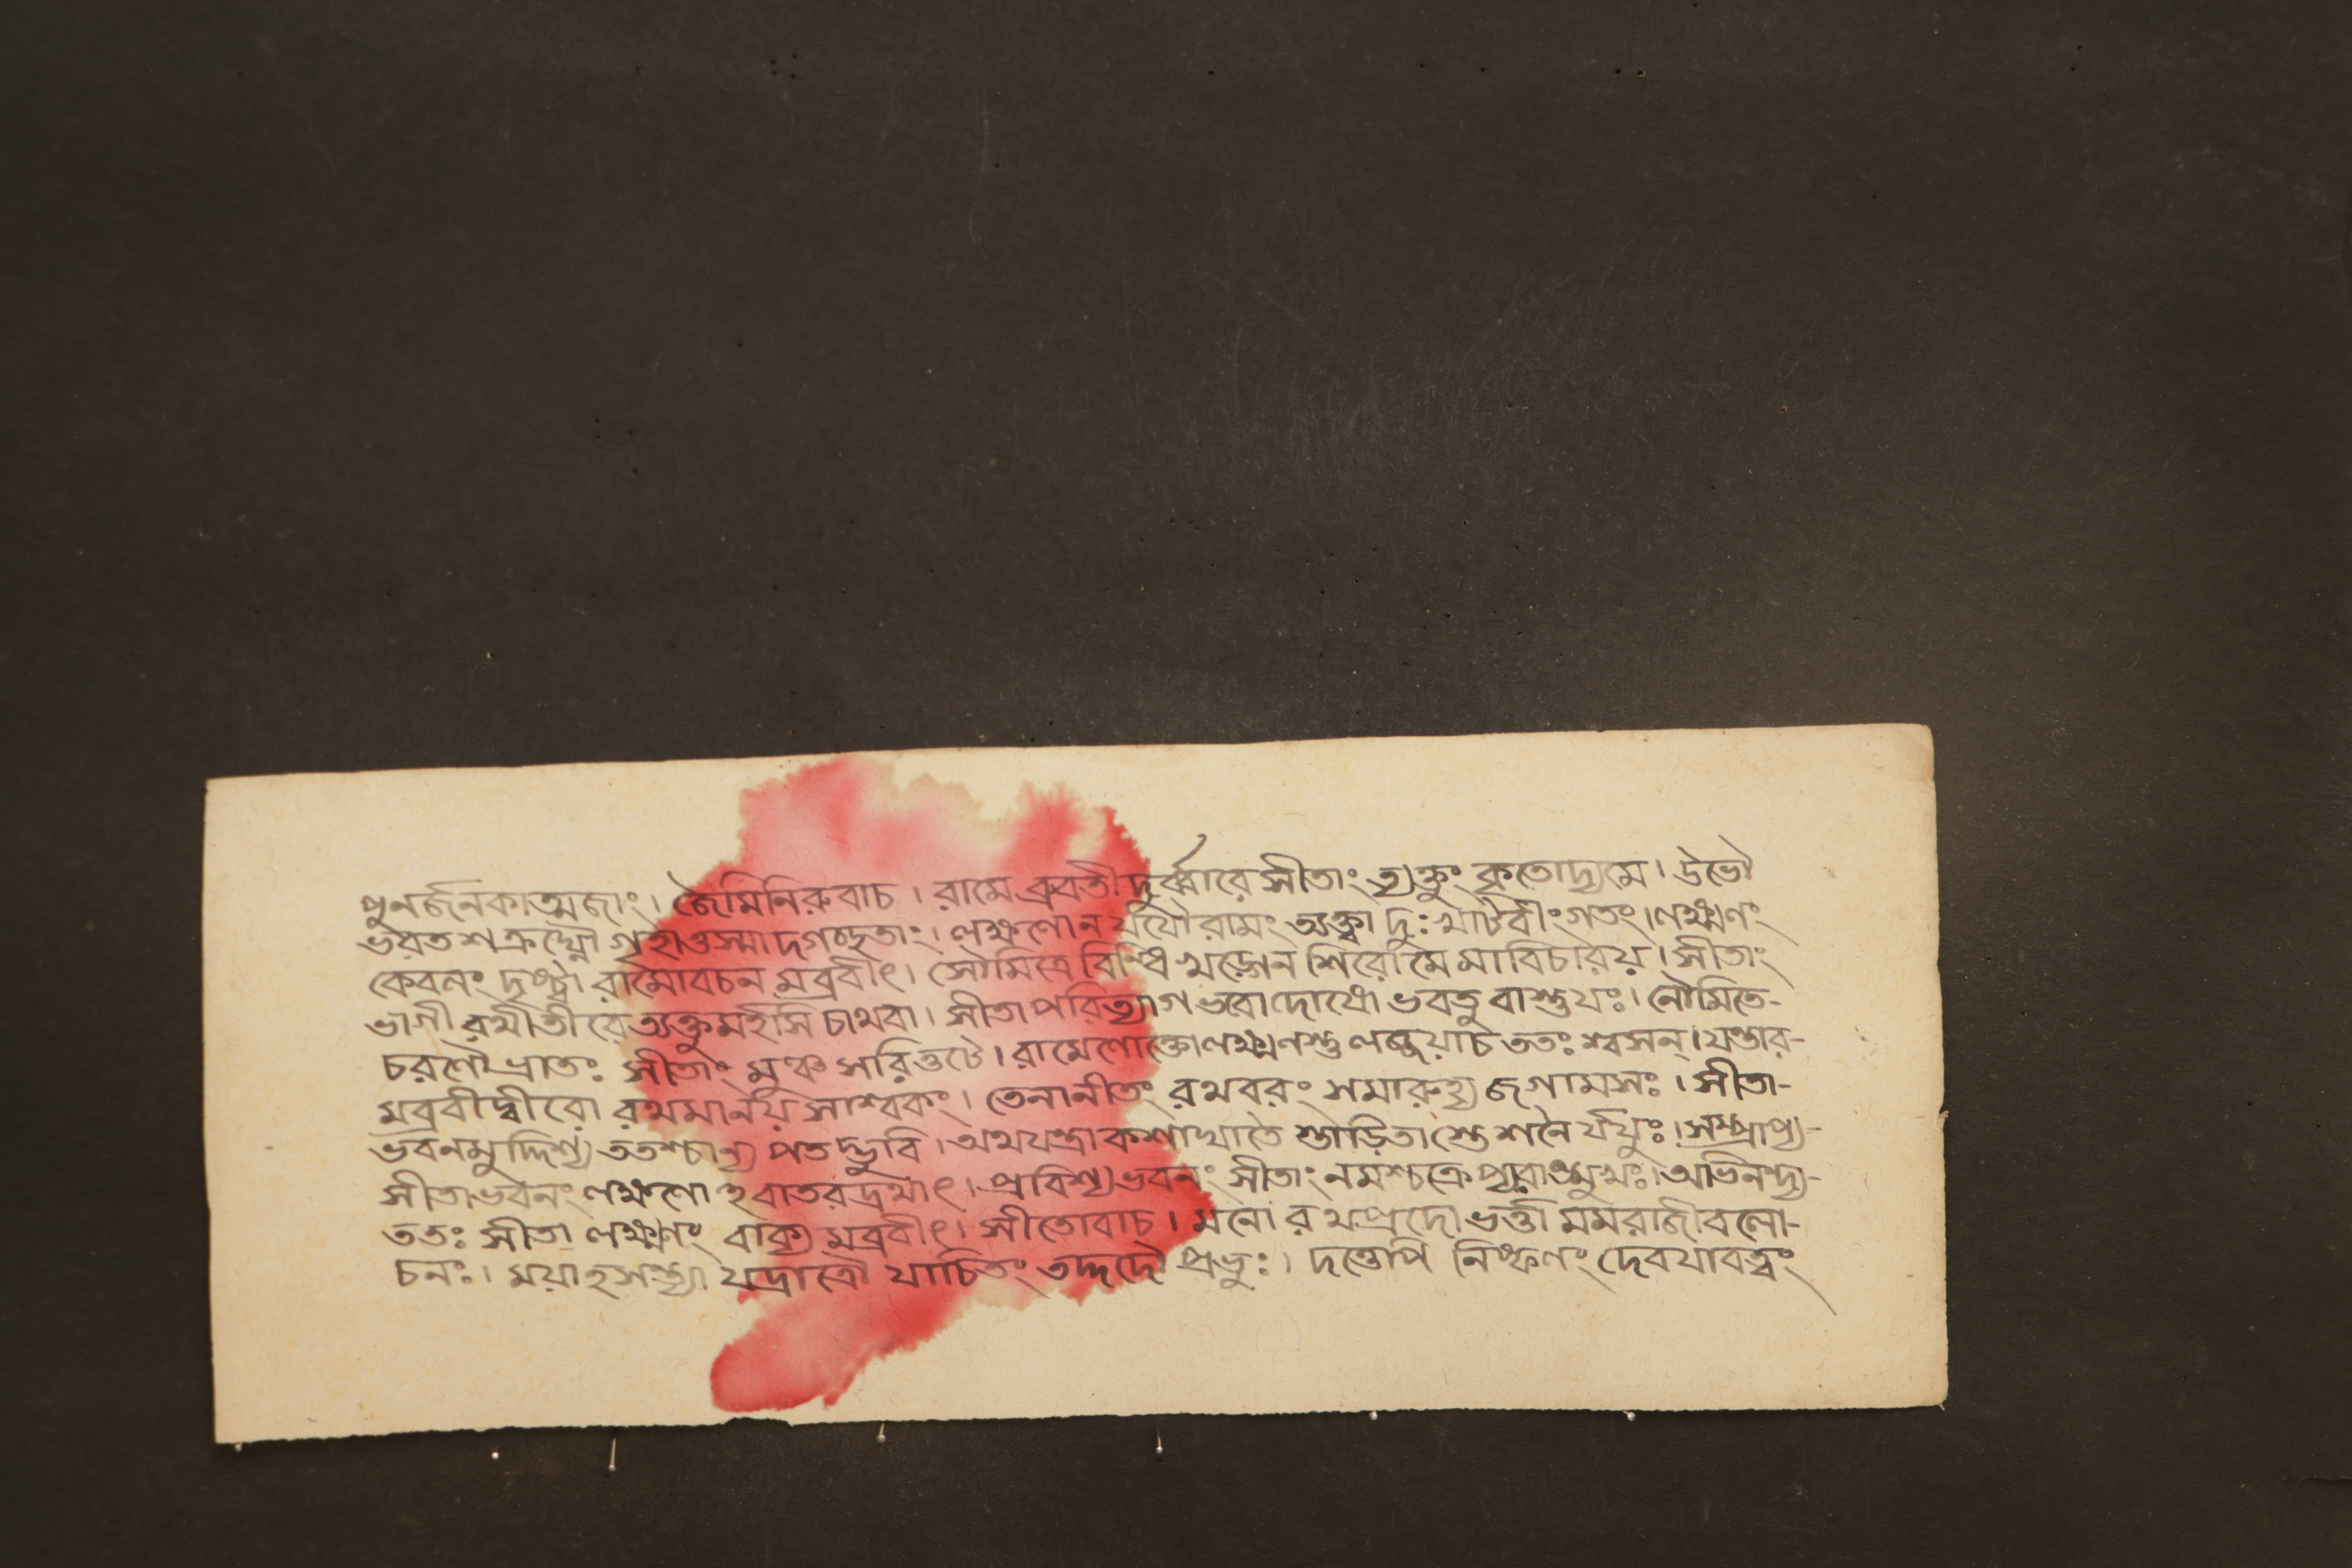 পুনর্জনকাত্মজাং। জৈমিনিরুবাচ। রামে ব্রুবতী দুর্ব্বারে সীতাং ত্যক্তুং কৃতোদ্যমে। উভৌ
ভরত শত্রুঘ্নৌ গৃহাত্তস্মাদগচ্ছতাং। লক্ষণো ন যযৌ রামং ত্যক্ত্বা দুঃখাটবীং গতং। লক্ষ্মণং
কেবলং দৃষ্ট্বা রামো বচন মব্রবীৎ। সৌমিত্রে খড্গেন শিরো মে মা বিচারয়। সীতাং
ভাগীরথীতীরে ত্যক্তুমর্হসি চাথবা। সীতা পরিত্যাগ ভবো দোষো ভবতু বাশুভঃ। নৌমিতে-
চরণৌ ভ্রাতঃ সীতাং মুঞ্চ সরিত্তটে। রামেণোক্তো লক্ষ্মণস্তু লজ্জয়াচ ততঃ শ্বসন্। যন্তার-
মব্রবীদ্বীরো রথমানয় সাশ্বকং। তেনানীতং রথবরং সমারুহ্য জগামসঃ। সীতা-
ভবনমুদ্দিশ্য ততশ্চান্য পতদ্ভুবি। অথযন্ত্রা কশাঘাতৈ স্তাড়িতাস্তে শনৈ র্যযুঃ। সম্প্রাপ্য-
সীতাভবনং লক্ষণো হবাতরদ্রথাৎ। প্রবিশ্য ভবনং সীতাং নমশ্চক্রে প্যবাঙ্মুখঃ। অভিনন্দ্য-
ততঃ সীতা লক্ষ্মণং বাক্য মব্রবীৎ। সীতোবাচ। মনোরথপ্রদো ভর্ত্তা মমরাজীবলো-
চনঃ। ময়াহসন্ত্যা যদ্রাত্রৌ যাচিতং তদ্দদৌ প্রভুঃ। দত্তোপি নিষ্ফলং দেবযাবত্ত্বং